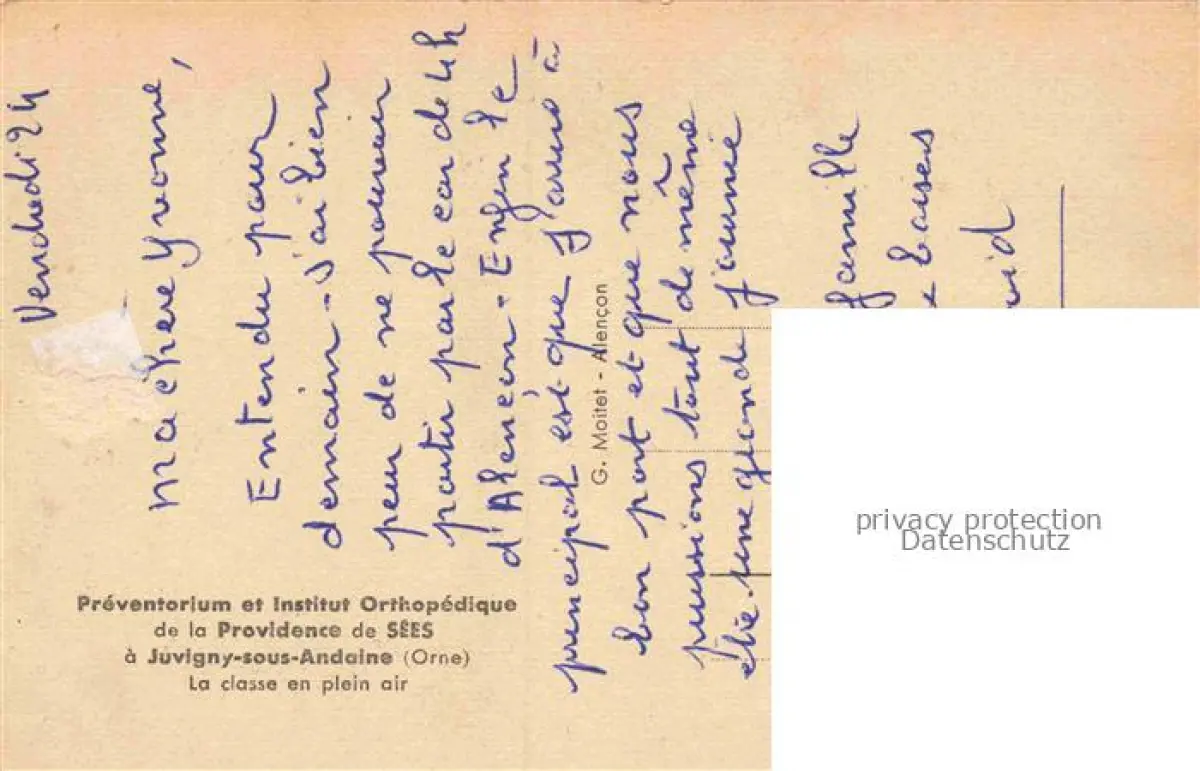 Vendredi 24
Ma chère Yvonne,
Entendu pour
demain - J'ai bien
peur de ne pouvoir
partir par le car de 4h
d'Alençon - Enfin le
principal est que j'arrive à
bon port et que nous
puissions tout de même
être une grande journée
famille
baisers
Préventorium et Institut Orthopédique
de la Providence de SÉES
à Juvigny-sous-Andaine (Orne)
La classe en plein air
G. Moitet - Alençon
privacy protection
Datenschutz